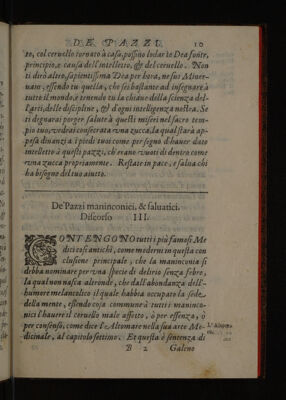 DE PAZZI. 10
ro, col ceruello tornato à casa, possino lodar te Dea fonte,
principio, e causa dell'intelletto, & del ceruello. Non
ti dirò altro, sapientissima Dea per hora, ne sus Miner-
uam, essendo tu quella, che sei bastante ad insegnare à
tutto il mondo, e tenendo tu la chiaue della scienza del-
l'arti, delle discipline, & d'ogni intelligenza nostra. Se
ti degnarai porger salute à questi miseri nel sacro tem-
pio tuo, vedrai consecrata vna zucca, la qual starà ap-
pesa dinanzi a i piedi tuoi come per segno d'hauer dato
intelletto à questi pazzi, ch'erano vuoti di dentro come
vna zucca propriamente. Restate in pace, e salua chi
ha bisogno del tuo aiuto.
De Pazzi maninconici, & saluatici.
Discorso III.
CONTENGONO tutti i più famosi Me
dici così antichi, come moderni in questa con
clusione principale, che la maninconia si
debba nominare per vna specie di delirio senza febre,
la qual non nasca altronde, che dall'abondanza dell'-
humore melancolico il quale habbia occupato la sede
della mente, essendo cosa commune à tutti i maninco-
nici l'hauere il ceruello male affetto, ò per essenza, ò
per consenso, come dice l'Altomare nella sua arte Me-
dicinale, al capitolo settimo. Et questa è sentenza di
B 2 Galeno